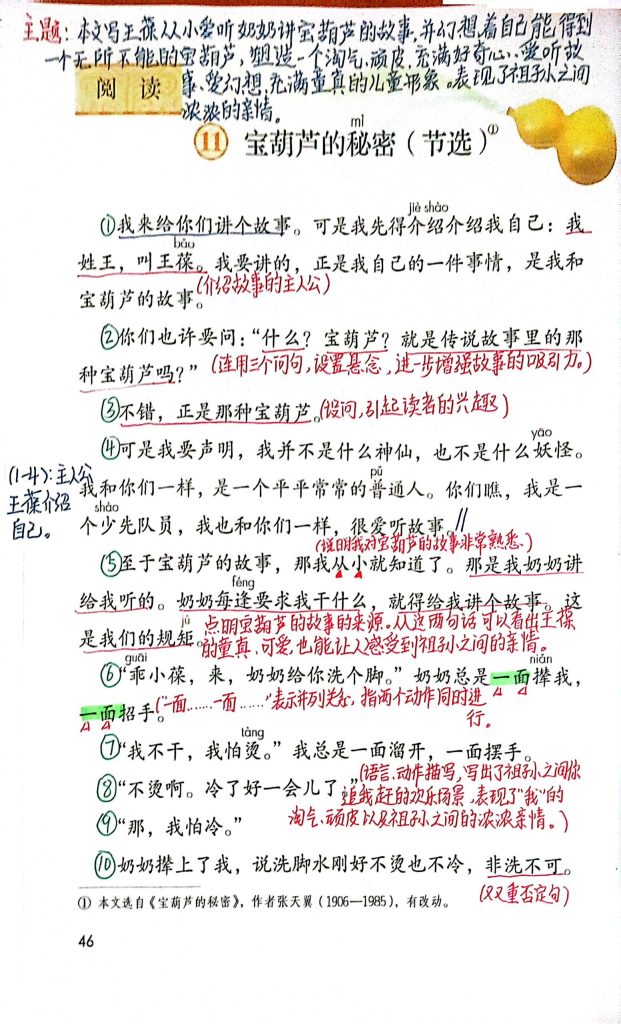 主题：本文写王葆从小爱听奶奶讲宝葫芦的故事，并幻想着自己能得到
一个无所不能的宝葫芦，塑造一个淘气、顽皮、充满好奇心、爱听故
事、爱幻想、充满童真的儿童形象。表现了祖孙之间
浓浓的亲情。
阅 读
mì
⑪ 宝葫芦的秘密（节选）①
jiè shào
①我来给你们讲个故事。可是我先得介绍介绍我自己：我
bǎo
姓王，叫王葆。我要讲的，正是我自己的一件事情，是我和
宝葫芦的故事。
(介绍故事的主人公)
②你们也许要问：“什么？宝葫芦？就是传说故事里的那
种宝葫芦吗？”
(连用三个问句，设置悬念，进一步增强故事的吸引力。)
③不错，正是那种宝葫芦。
(设问，引起读者的兴趣)
yāo
④可是我要声明，我并不是什么神仙，也不是什么妖怪。
pǔ
我和你们一样，是一个平平常常的普通人。你们瞧，我是一
shào
个少先队员，我也和你们一样，很爱听故事。
(1-4)：主人公
王葆介绍
自己。
(说明我对宝葫芦的故事非常熟悉。)
⑤至于宝葫芦的故事，那我从小就知道了。那是我奶奶讲
féng
给我听的。奶奶每逢要求我干什么，就得给我讲个故事。这
jǔ
是我们的规矩。
点明宝葫芦的故事的来源。从这两句话可以看出王葆
的童真、可爱，也能让人感受到祖孙之间的亲情。
guāi
niǎn
⑥“乖小葆，来，奶奶给你洗个脚。”奶奶总是一面撵我，
一面招手。
(“一面……一面……”表示并列关系，指两个动作同时进
行。
tàng
⑦“我不干，我怕烫。”我总是一面溜开，一面摆手。
⑧“不烫啊。冷了好一会儿了。”
(语言、动作描写，写出了祖孙之间你
追我赶的欢乐场景，表现了“我”的
淘气、顽皮以及祖孙之间的浓浓亲情。)
⑨“那，我怕冷。”
⑩奶奶撵上了我，说洗脚水刚好不烫也不冷，非洗不可。
(双重否定句)
① 本文选自《宝葫芦的秘密》，作者张天翼（1906—1985），有改动。
46